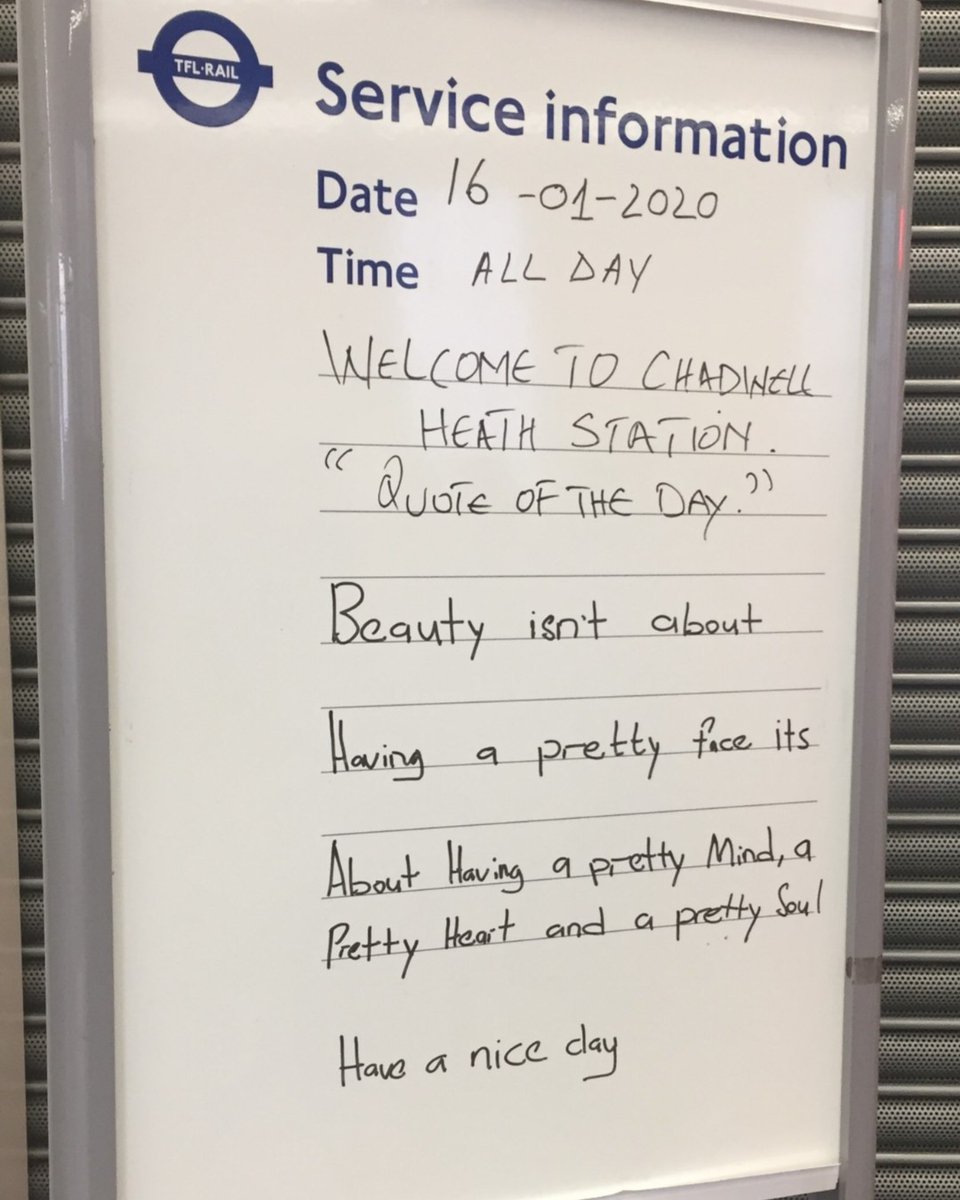 TFL·RAIL
Service information
Date 16-01-2020
Time ALL DAY
WELCOME TO CHADWELL
HEATH STATION.
"QUOTE OF THE DAY."
Beauty isn't about
Having a pretty face its
About Having a pretty Mind, a
Pretty Heart and a pretty Soul
Have a nice day